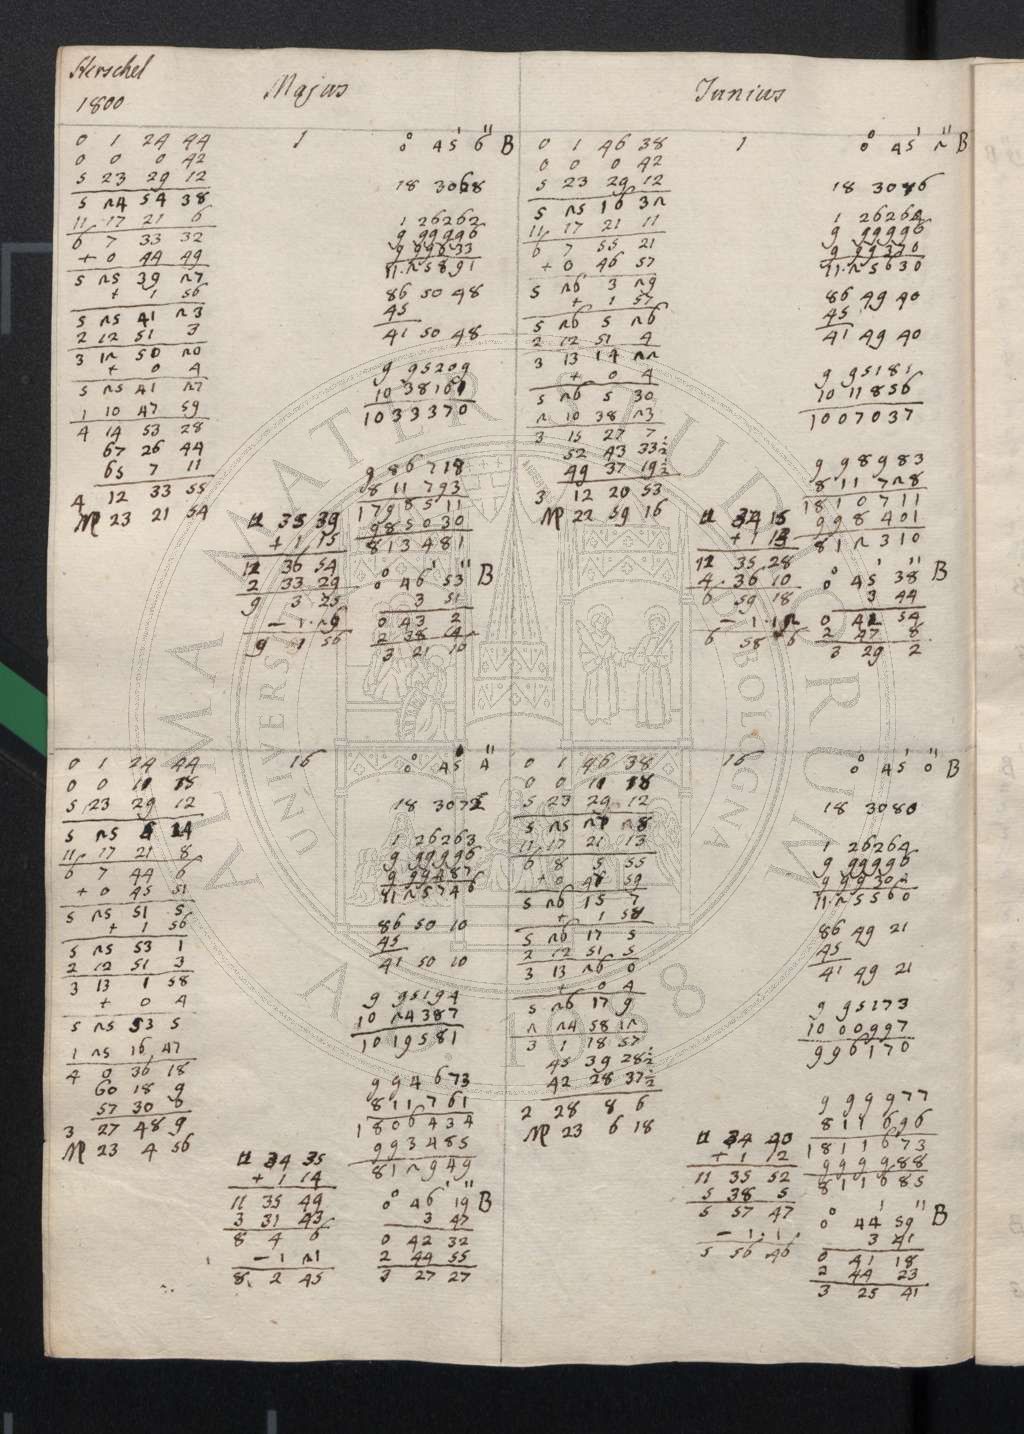 Herschel
1800
Majus
Junius
1
0 1 24 44
0 0 0 42
5 23 29 12
5 24 54 38
11 17 21 6
6 7 33 32
+ 0 44 49
5 25 39 27
+ 1 56
5 25 41 23
2 12 51 3
3 12 50 20
+ 0 4
5 25 41 27
1 10 47 59
4 14 53 28
67 26 44
65 7 11
4 12 33 55
♍ 23 21 54
0° 45' 6" B
18 3068
1 26262
9 99996
9 99833
11.25891
86 50 48
45
41 50 48
9 95209
10 38161
10 33370
9 86718
8 11793
1798511
985030
813481
11 35 39
+ 1 15
11 36 54
2 33 29
9 3 25
− 1 29
9 1 56
0° 46' 53" B
3 51
0 43 2
2 38 8
3 21 10
1
0 1 46 38
0 0 0 42
5 23 29 12
5 25 16 32
11 17 21 11
6 7 55 21
+ 0 46 57
5 26 3 29
+ 1 57
5 26 5 26
2 12 51 4
3 13 14 22
+ 0 4
5 26 5 30
2 10 38 23
3 15 27 7
52 43 33½
49 37 19½
3 12 20 53
♍ 22 59 16
0° 45' 2" B
18 3076
1 26264
9 99996
9 99370
11.25630
86 49 40
45
41 49 40
9 95181
10 11856
10 07037
9 98983
8 11728
1810711
998401
812310
11 34 15
+ 1 13
11 35 28
4 36 10
6 59 18
− 1 12
6 58 6
0° 45' 38" B
3 44
0 41 54
2 47 8
3 29 2
16
0 1 24 44
0 0 11 18
5 23 29 12
5 25 5 14
11 17 21 8
6 7 44 6
+ 0 45 51
5 25 51 5
+ 1 56
5 25 53 1
2 12 51 3
3 13 1 58
+ 0 4
5 25 53 5
1 25 16 47
4 0 36 18
60 18 9
57 30 0
3 27 48 9
♍ 23 4 56
0° 45' 4"
18 3072
1 26263
9 99996
9 99487
11.25746
86 50 10
45
41 50 10
9 95194
10 24387
10 19581
9 94673
8 11761
1806434
993485
812949
11 34 35
+ 1 14
11 35 49
3 31 43
8 4 6
− 1 21
8 2 45
0° 46' 19" B
3 47
0 42 32
2 44 55
3 27 27
16
0 1 46 38
0 0 11 18
5 23 29 12
5 25 27 8
11 17 21 13
6 8 5 55
+ 0 47 59
5 26 15 7
+ 1 58
5 26 17 5
2 12 51 5
3 13 26 0
+ 0 4
5 26 17 9
2 24 58 12
3 1 18 57
45 39 28½
42 28 37½
2 28 8 6
♍ 23 6 18
0° 45' 0" B
18 3080
1 26264
9 99996
9 99302
11.25560
86 49 21
45
41 49 21
9 95173
10 00997
9 96170
9 99977
8 11696
1811673
999988
811885
11 34 40
+ 1 12
11 35 52
5 38 5
5 57 47
− 1 1
5 56 46
0° 44' 59" B
3 41
0 41 18
2 44 23
3 25 41
ALMA MATER STUDIORUM
UNIVERSITAS BOLOGNA
A.D. 1088